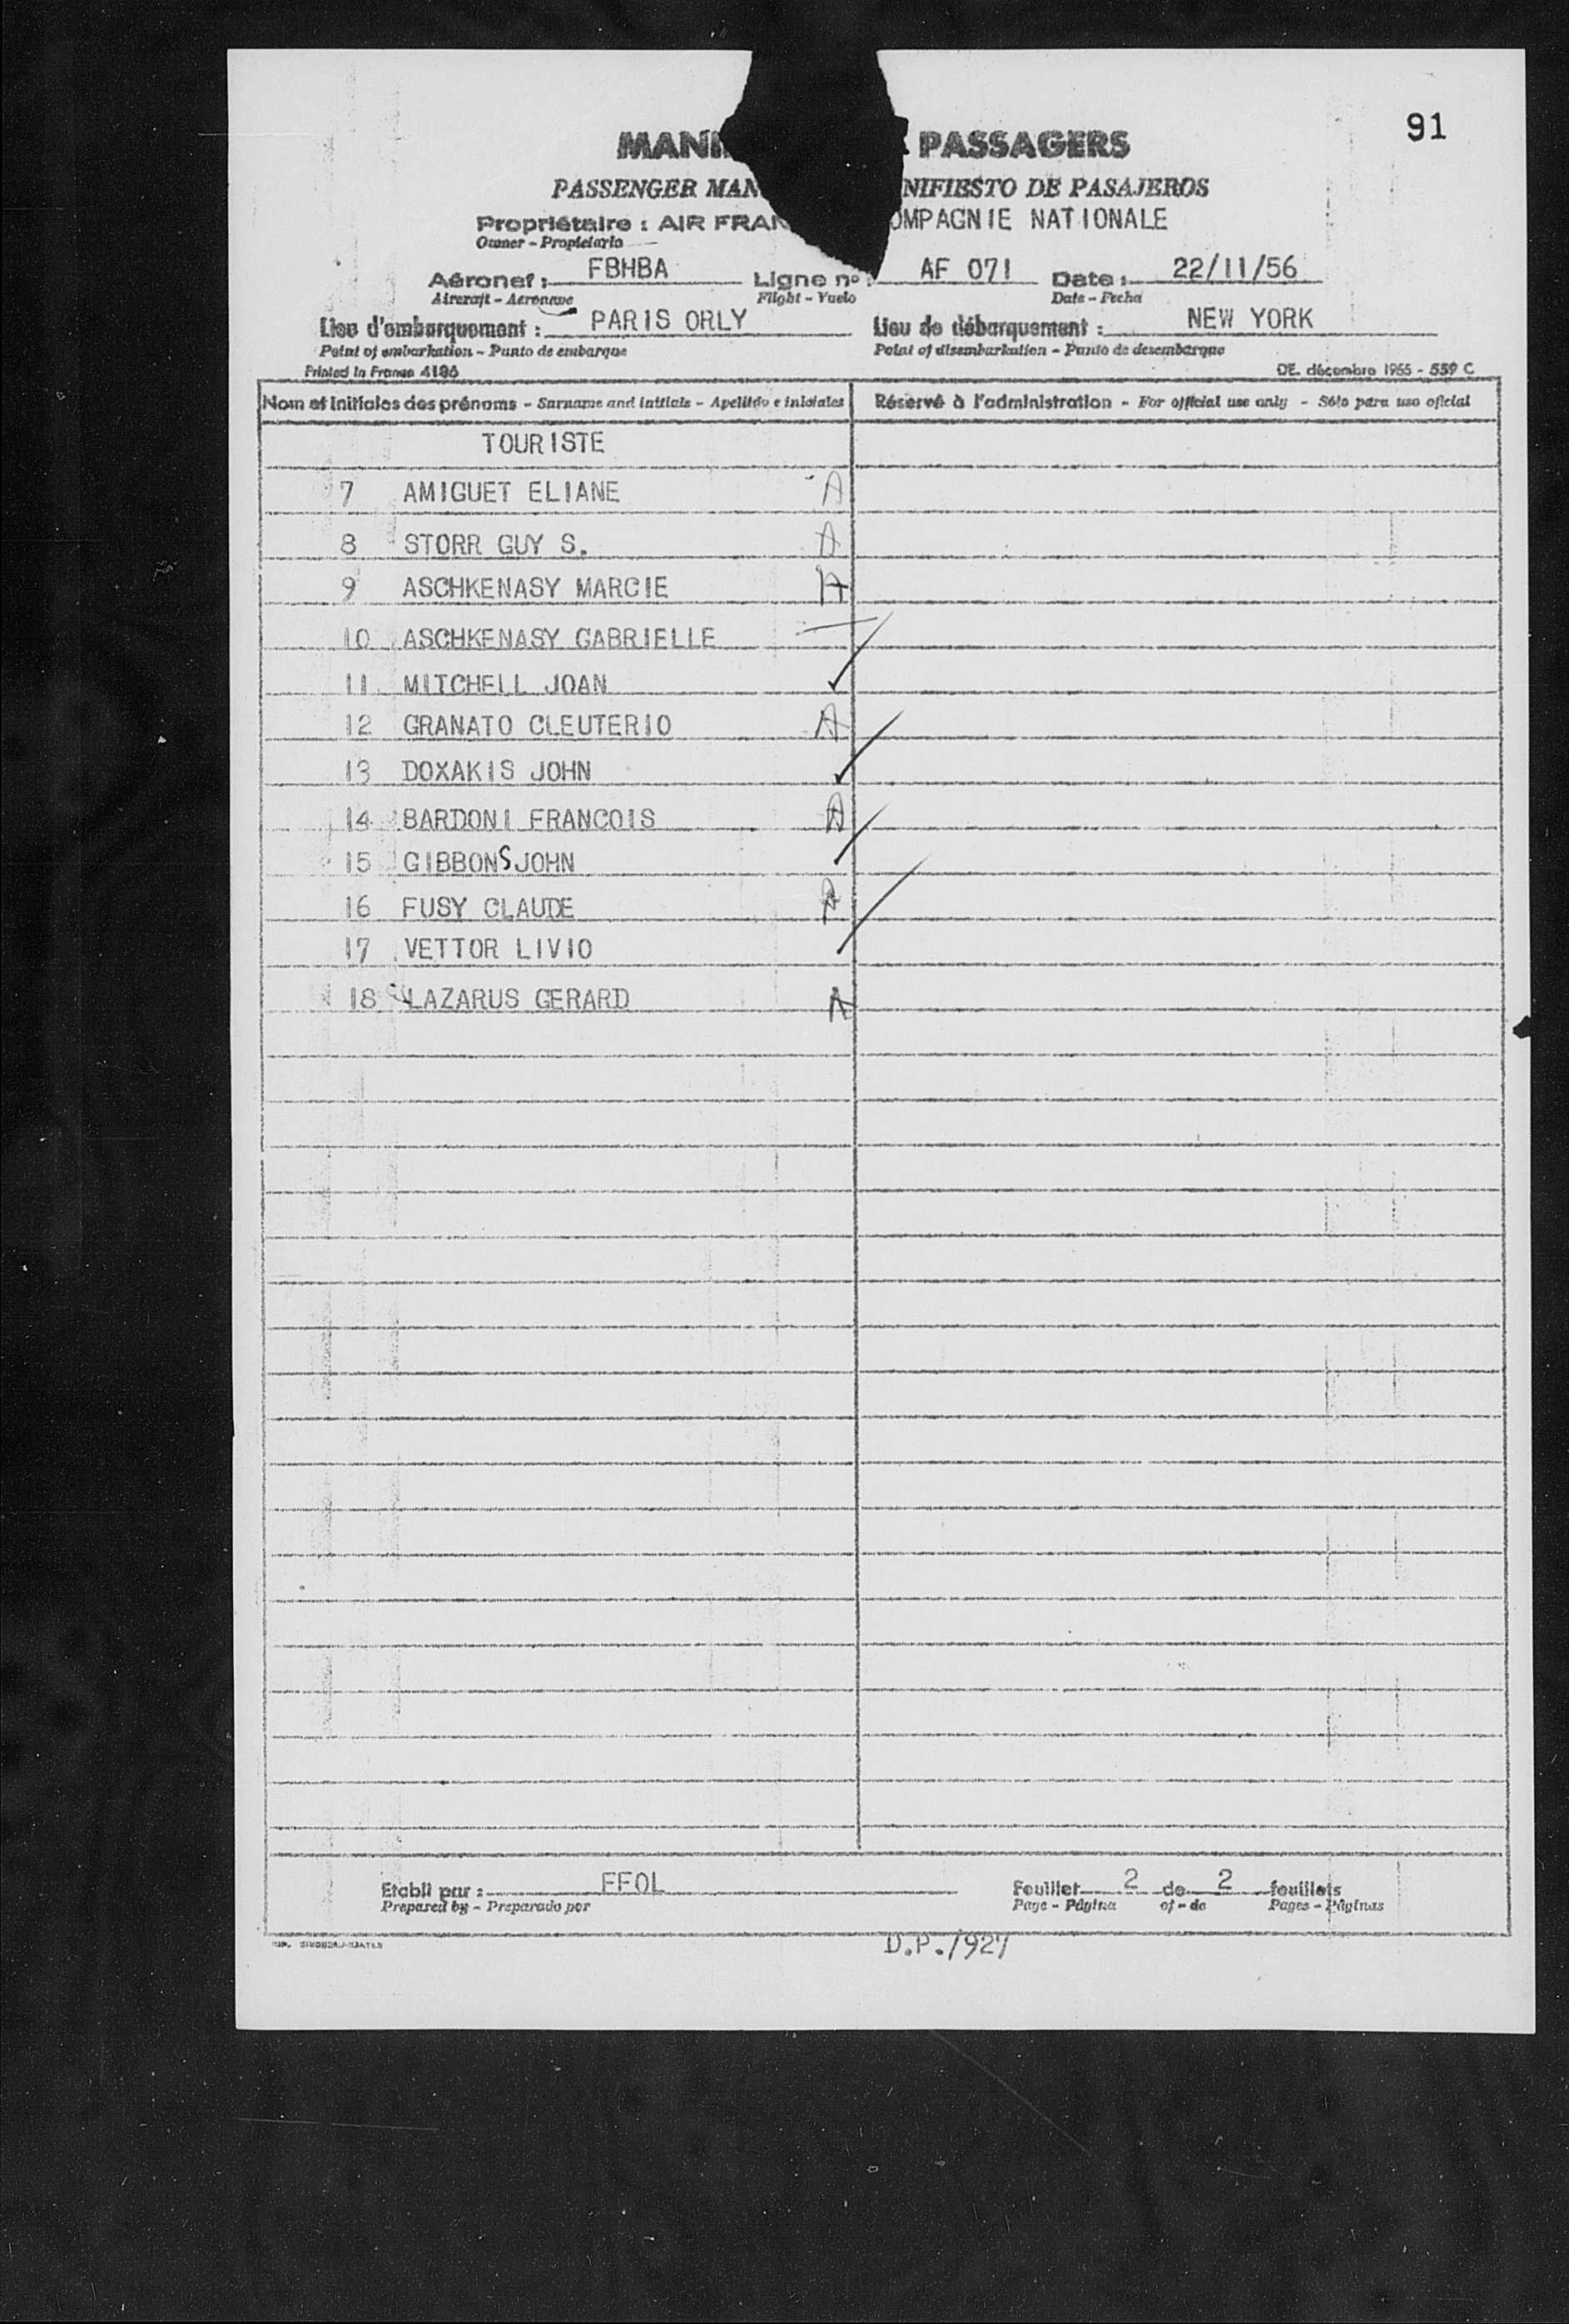 91
MANI PASSAGERS
PASSENGER MAN NIFIESTO DE PASAJEROS
Propriétaire : AIR FRAN OMPAGNIE NATIONALE
Owner - Propietario
Aéronef : FBHBA Ligne nº : AF 071 Date : 22/11/56
Aircraft - Aeronave Flight - Vuelo Date - Fecha
Lieu d'embarquement : PARIS ORLY Lieu de débarquement : NEW YORK
Point of embarkation - Punto de embarque Point of disembarkation - Punto de desembarque
Printed in France 4186 DE. décembre 1955 - 559 C
Nom et initiales des prénoms - Surname and initials - Apellido e iniciales Réservé à l'administration - For official use only - Sólo para uso oficial
TOURISTE
7 AMIGUET ELIANE A
8 STORR GUY S. A
9 ASCHKENASY MARCIE A
10 ASCHKENASY GABRIELLE
11 MITCHELL JOAN ✓
12 GRANATO CLEUTERIO A
13 DOXAKIS JOHN ✓
14 BARDONI FRANCOIS A
15 GIBBONS JOHN ✓
16 FUSY CLAUDE A
17 VETTOR LIVIO ✓
18 LAZARUS GERARD A
Etabli par : FFOL Feuillet 2 de 2 feuillets
Prepared by - Preparado por Page - Página of - de Pages - Páginas
D.P./927